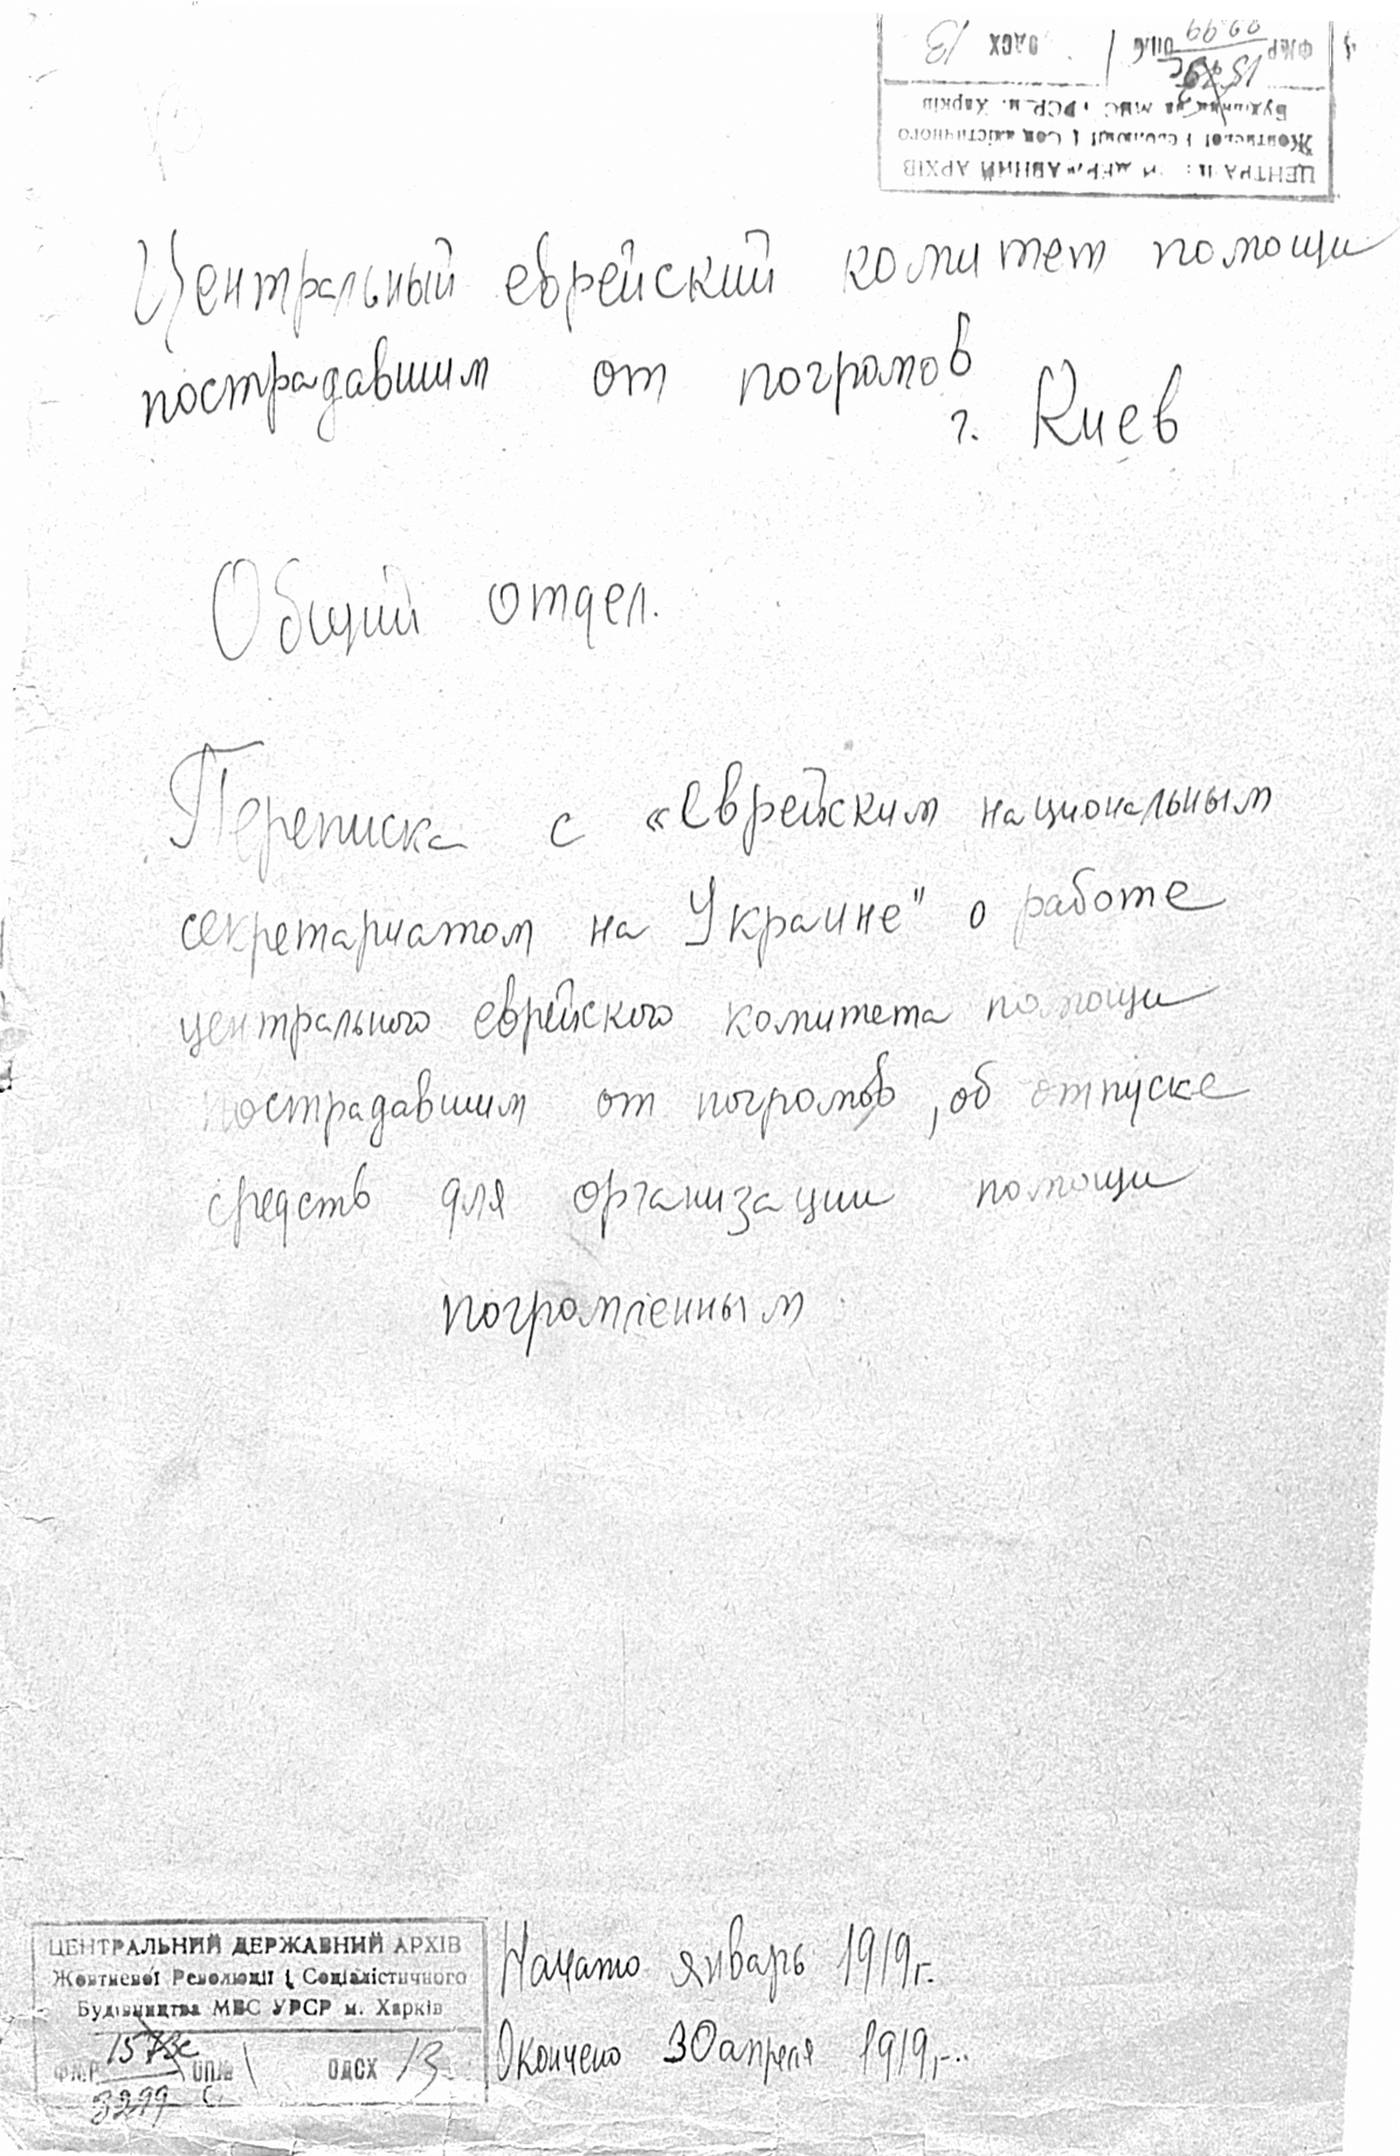 ЦЕНТРА ДЕРЖАВНИЙ АРХІВ
Жовтневої Революції і Соціалістичного
Будівництва МВС УРСР м. Харків
Ф№Р ОП.№ 1 ОДСХ 13
Центральный еврейский комитет помощи
пострадавшим от погромов
г. Киев
Общий отдел.
Переписка с «еврейским национальным
секретариатом на Украине" о работе
центрального еврейского комитета помощи
пострадавшим от погромов, об отпуске
средств для организации помощи
погромленным
ЦЕНТРАЛЬНИЙ ДЕРЖАВНИЙ АРХІВ
Жовтневої Революції і Соціалістичного
Будівництва МВС УРСР м. Харків
Ф№Р ОП.№ 1 ОДСХ 13
3299
Начато январь 1919 г.
Окончено 30 апреля 1919 г.